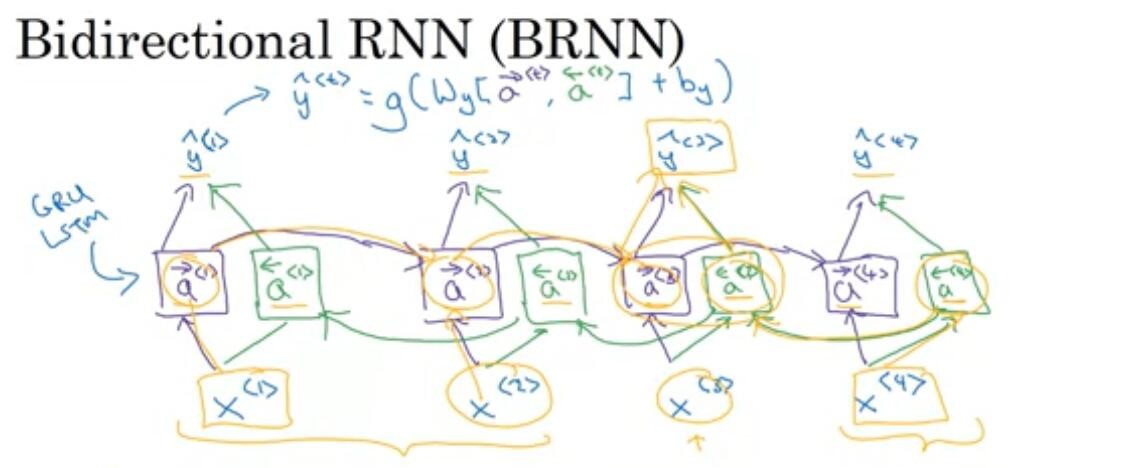 Bidirectional RNN (BRNN)
ŷ<t> = g(Wy[a→<t>, a←<t>] + by)
ŷ<1> ŷ<2> ŷ<3> ŷ<4>
GRU
LSTM
a→<1> a←<1> a→<2> a←<2> a→<3> a←<3> a→<4> a←<4>
x<1> x<2> x<3> x<4>